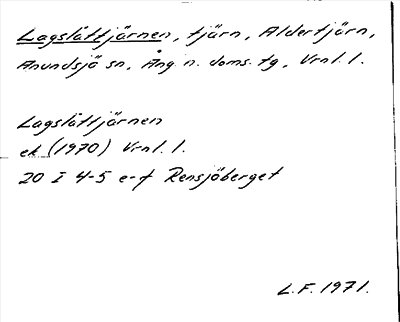 Lagslåttjärnen, tjärn, Aldertjärn,
Anundsjö sn, Ång. n. doms. tg, Vrnl. l.
Lagslåttjärnen
ek (1970) Vrnl. l.
20 I 4-5 e-f Rensjöberget
L.F. 1971.